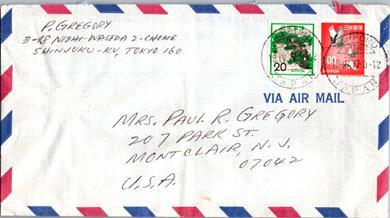 P. GREGORY
3-18 NISHI-WASEDA 2-CHOME
SHINJUKU-KU, TOKYO 160
20
NIPPON
日本郵便
NIPPON
JAPAN
VIA AIR MAIL
MRS. PAUL R. GREGORY
207 PARK ST.
MONTCLAIR, N.J.
07042
U.S.A.